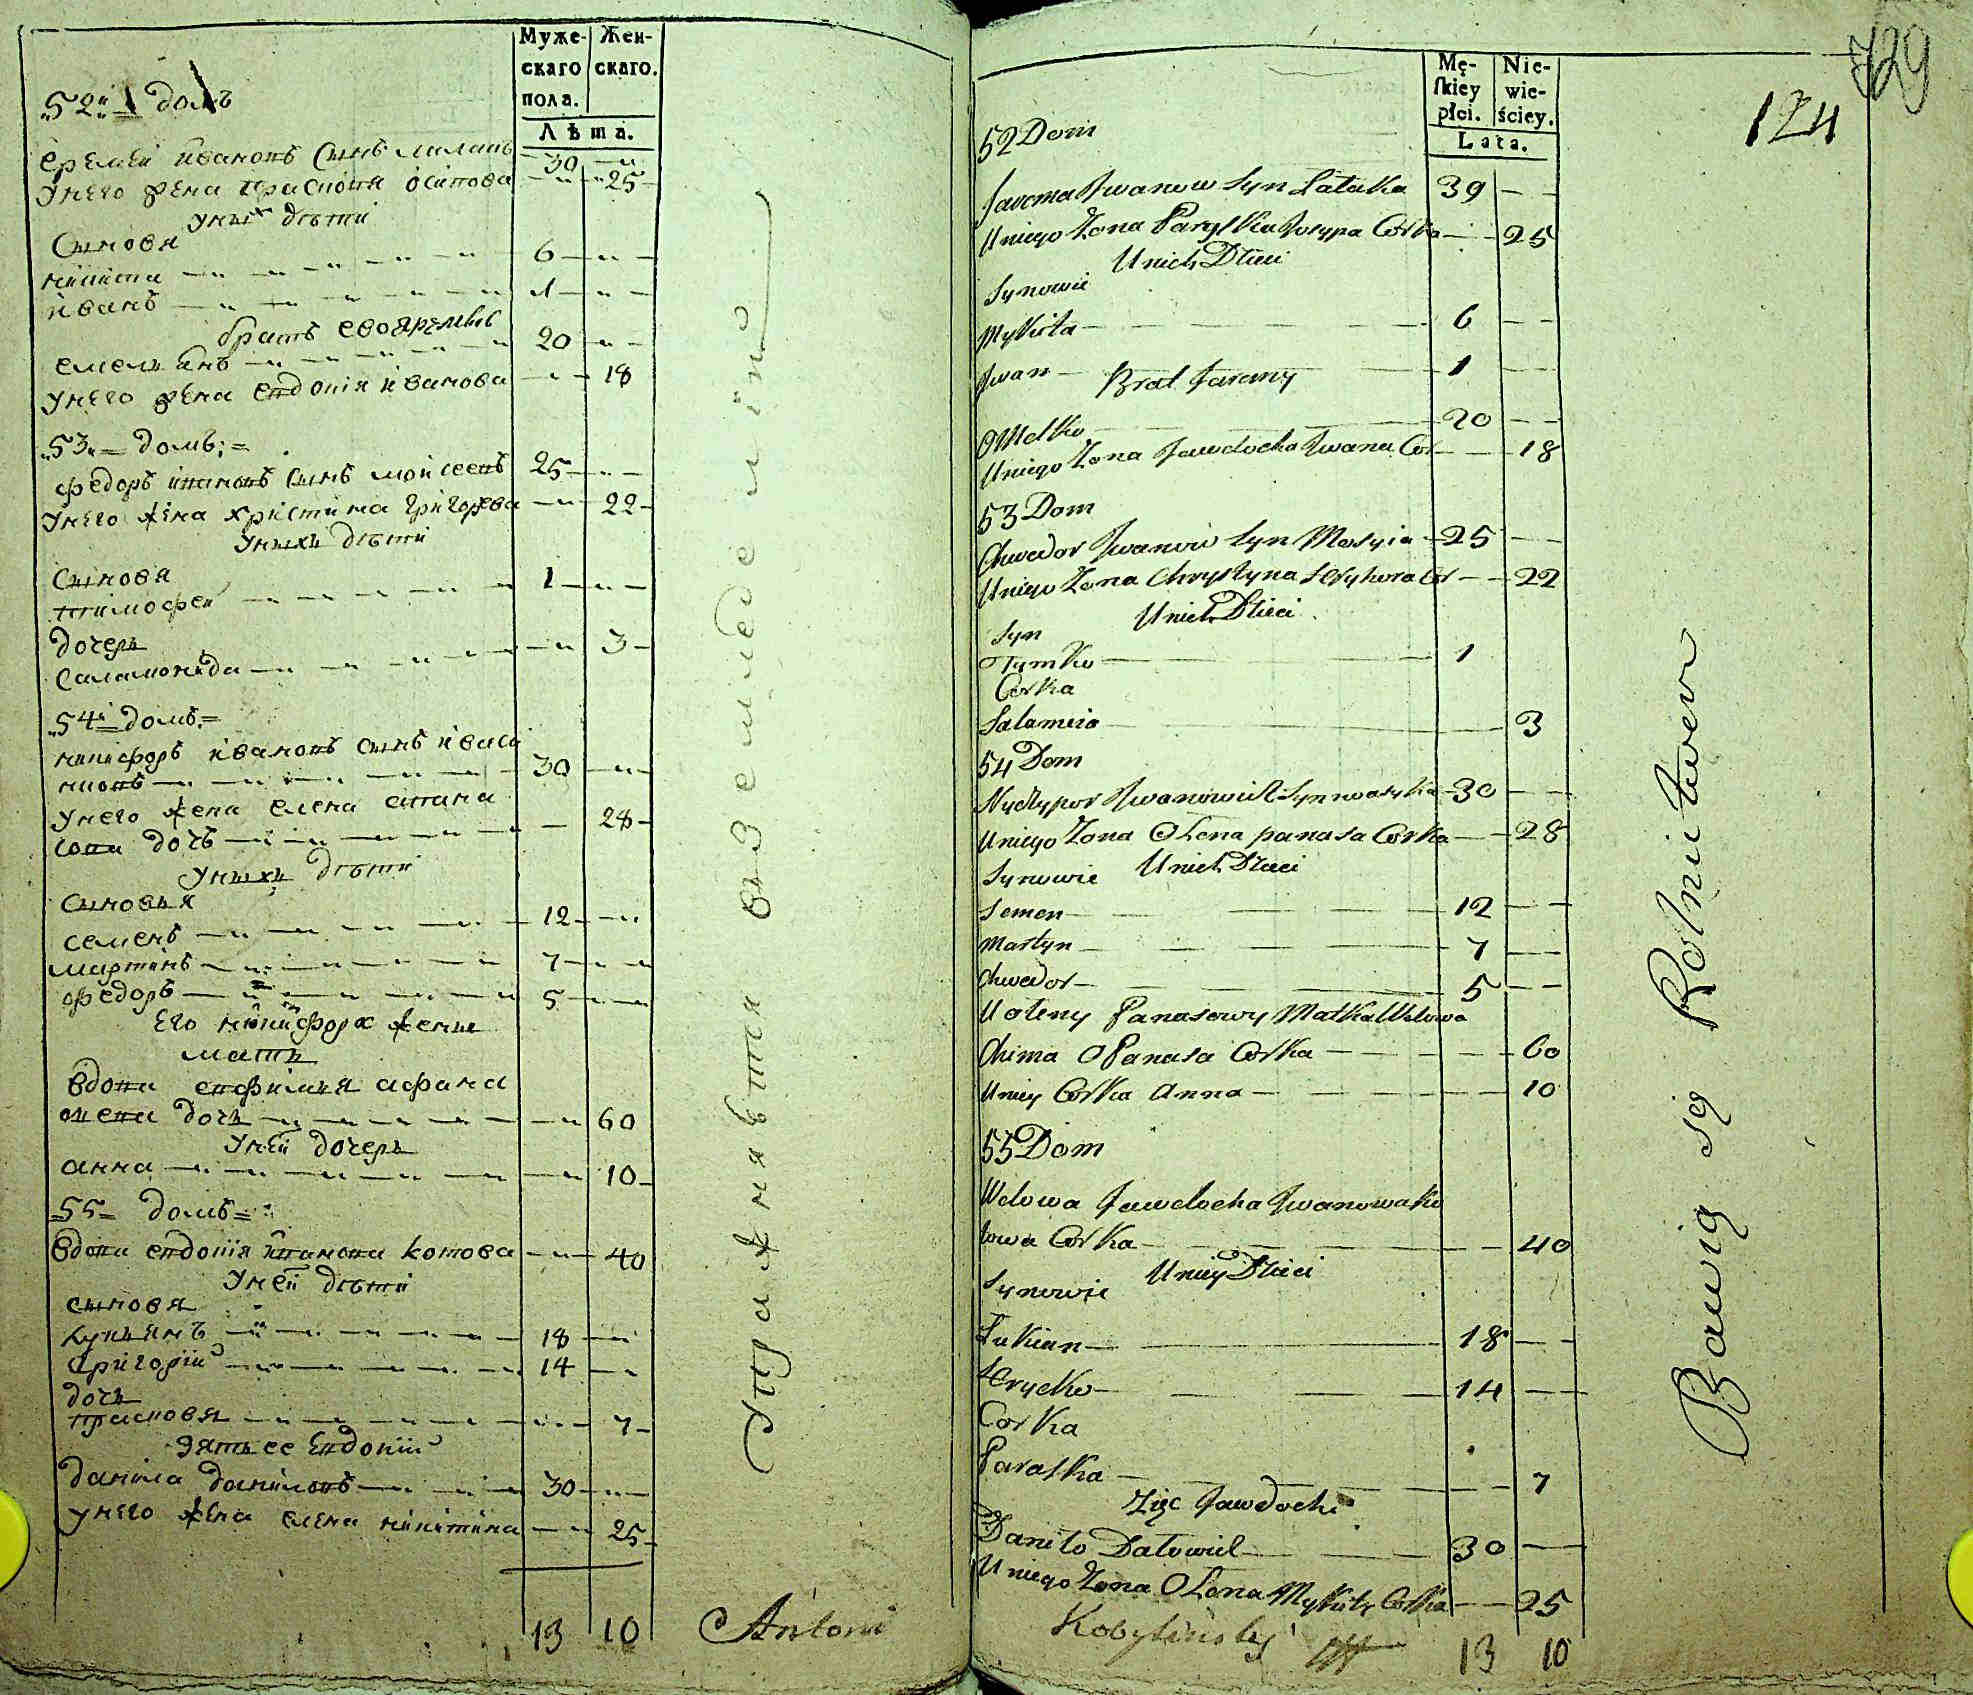 Муже- Жен-
скаго скаго.
пола.
Лѣта.
52й домъ
еремей ивановъ сынъ 30
у него жена прасковя осипова 25
у нихъ дѣти
сыновя
никита 6
иванъ 1
братъ его
емельянъ 20
у него жена евдокія иванова 18
53 домъ
федоръ ивановъ сынъ 25
у него жена христина григорева 22
у нихъ дѣти
сыновя
тимофей 1
дочерь
саламонида 3
54й домъ
никифоръ ивановъ сынъ
30
у него жена елена афана
сова дочь 28
у нихъ дѣти
сыновья
семенъ 12
мартинъ 7
федоръ 5
его никифора жены
мать
вдова евфимья афана
сиева дочь 60
у ней дочерь
анна 10
55 домъ
вдова евдокія иванова котова 40
у ней дѣти
сыновя
лукьянъ 18
григорій 14
дочь
прасковя 7
зять ее евдокіи
данила даниловъ 30
у него жена елена никитина 25
13 10
упражнявтся въ земледеліи
Antoni
729
124
Mę- Nie-
skiey wie-
płci. ściey.
Lata.
52 Dom
Jarema Iwanow Syn Łatuka 39
U niego Żona Paraska Josypa Corka 25
U nich Dzieci
Synowie
Mykita 6
Iwan 1
Brat Jaremy
Omelko 20
U niego Żona Jawdocha Iwana Cor 18
53 Dom
Chwedor Iwanow Syn Mosyia 25
U niego Żona Chrystyna Hryhora Cor 22
U nich Dzieci
Syn
Tymko 1
Corka
Salameia 3
54 Dom
Nyczypor Iwanowicz Syn 30
U niego Żona Olena panasa Corka 28
U nich Dzieci
Synowie
Semen 12
Martyn 7
Chwedor 5
U Oleny Panasowy Matka Wdowa
Chima Opanasa Corka 60
U niey Corka Anna 10
55 Dom
Wdowa Jawdocha Iwanowa Ko
towa Corka 40
U niey Dzieci
Synowie
Łukian 18
Hrycko 14
Corka
Paraska 7
Zięc Jawdochi
Daniło Datowicz 30
U niego Żona Olena Mykity Corka 25
Kobyliński
13 10
Bawią się Rolnictwem